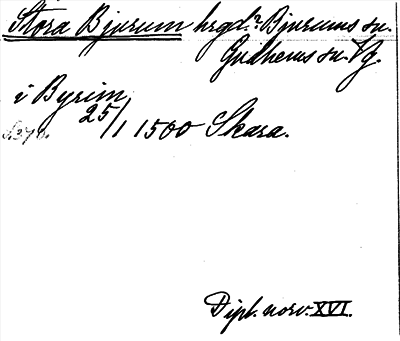 Stora Bjurum hrgd? Bjurums sn.
Gudhems sn. Vg.
i Byrim
25/1 1500 Skara.
Dipl. norv. XVI.